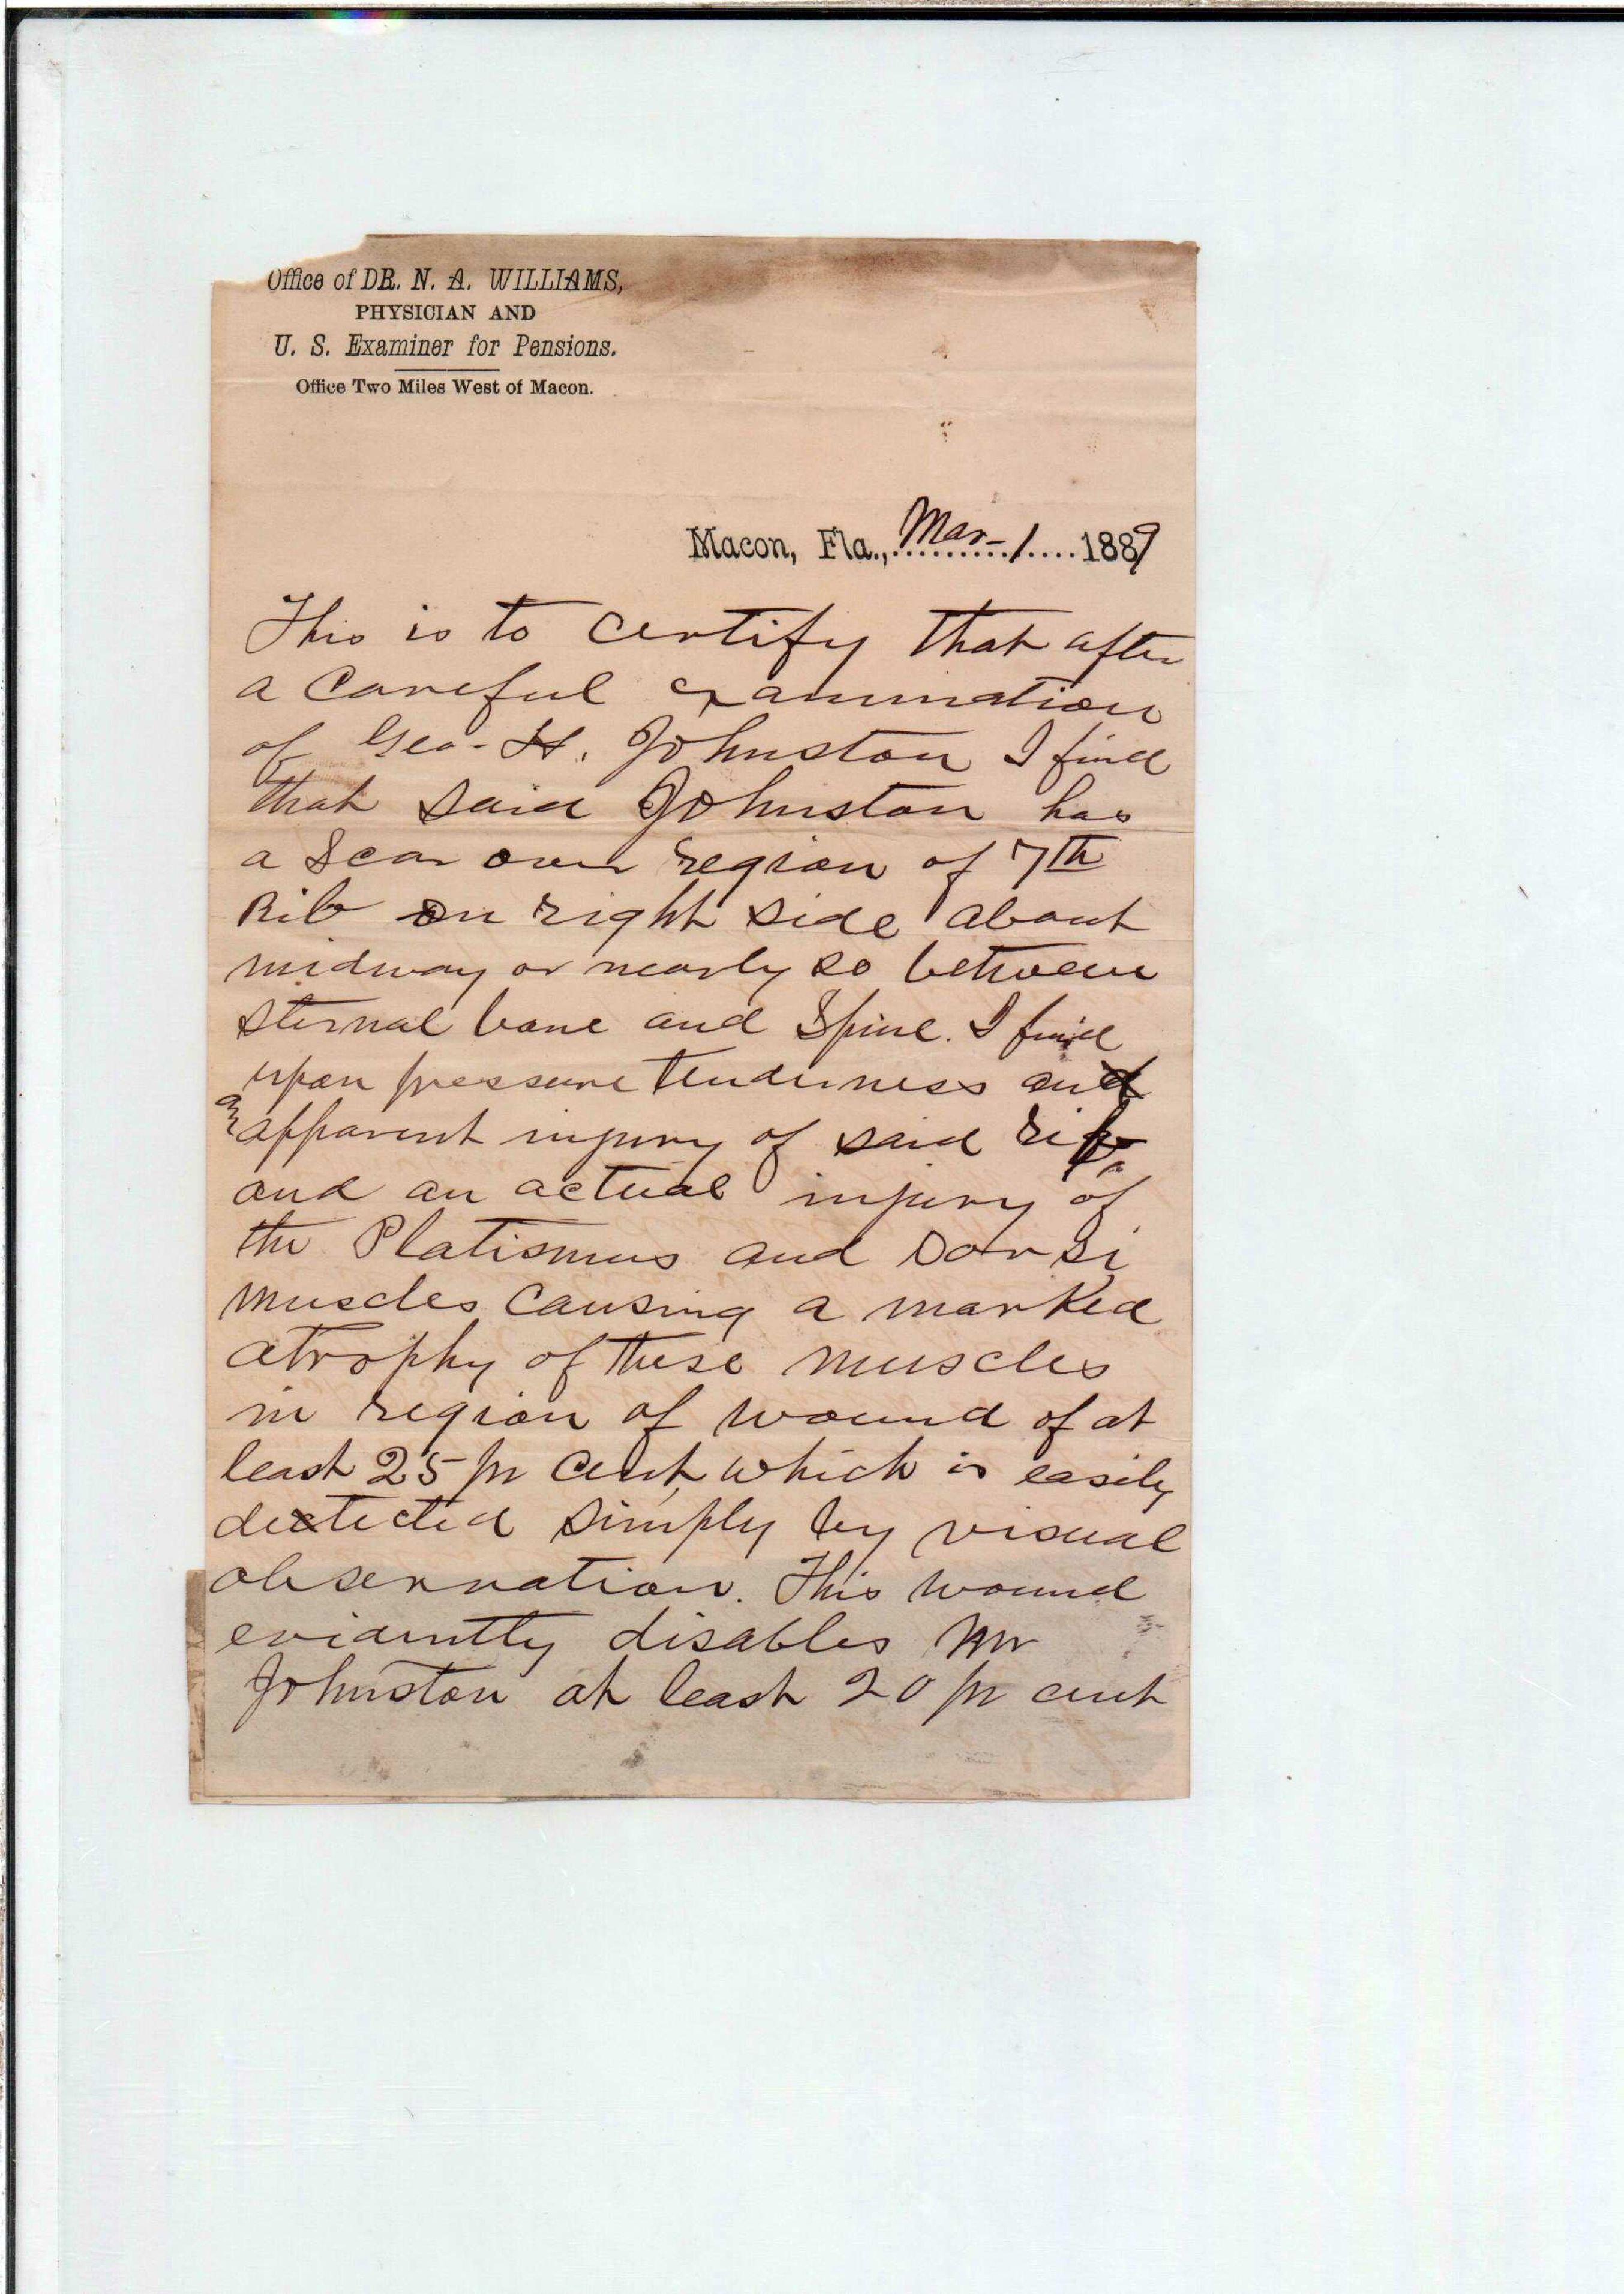 Office of DR. N. A. WILLIAMS,
PHYSICIAN AND
U. S. Examiner for Pensions.
Office Two Miles West of Macon.
Macon, Fla., Mar-1 1889
This is to certify that after
a careful examination
of Geo. H. Johnston I find
that said Johnston has
a Scar over region of 7th
Rib on right side about
midway or nearly so between
sternal bone and Spine. I find
upon pressure tenderness and
an apparent injury of said rib
and an actual injury of
the Platismus and Dorsi
muscles causing a marked
atrophy of these muscles
in region of wound of at
least 25 pr cent, which is easily
detected simply by visual
observation. This wound
evidently disables Mr
Johnston at least 20 pr cent